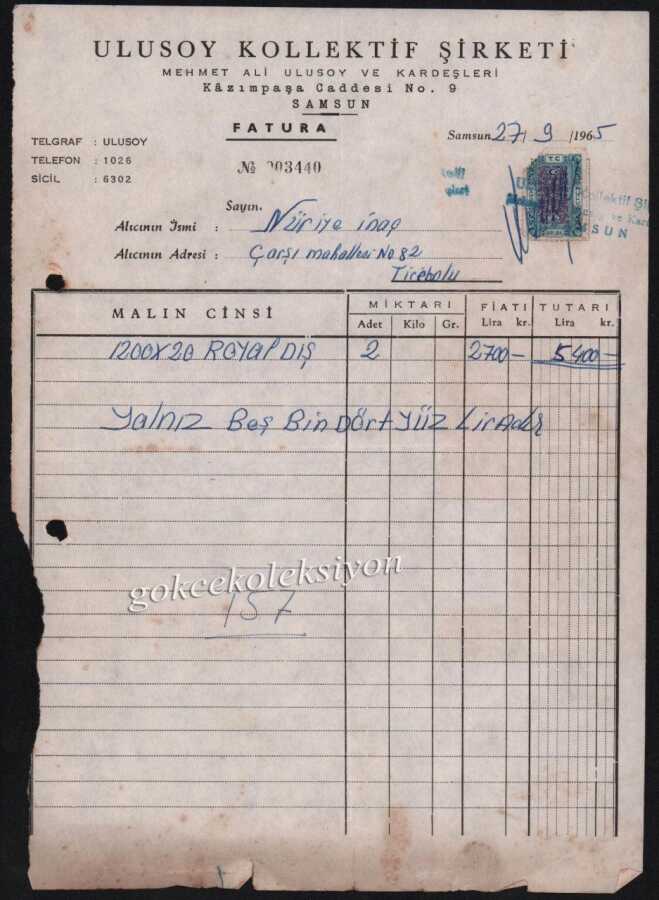 ULUSOY KOLLEKTİF ŞİRKETİ
MEHMET ALİ ULUSOY VE KARDEŞLERİ
Kâzımpaşa Caddesi No. 9
SAMSUN
FATURA
Samsun 27/9/1965
TELGRAF : ULUSOY
TELEFON : 1026
SİCİL : 6302
№ 003440
T C
Kollektif Şi
ve Kar
SUN
Sayın.
Alıcının İsmi : Nüriye inaç
Alıcının Adresi : Çarşı mahallesi No 82
Tirebolu
MALIN CİNSİ MİKTARI FİATI TUTARI
Adet Kilo Gr. Lira kr. Lira kr.
1200X20 ROYAl DIŞ 2 2700— 5400—
Yalnız Beş Bin Dört Yüz Liradır
gokcekoleksiyon
157